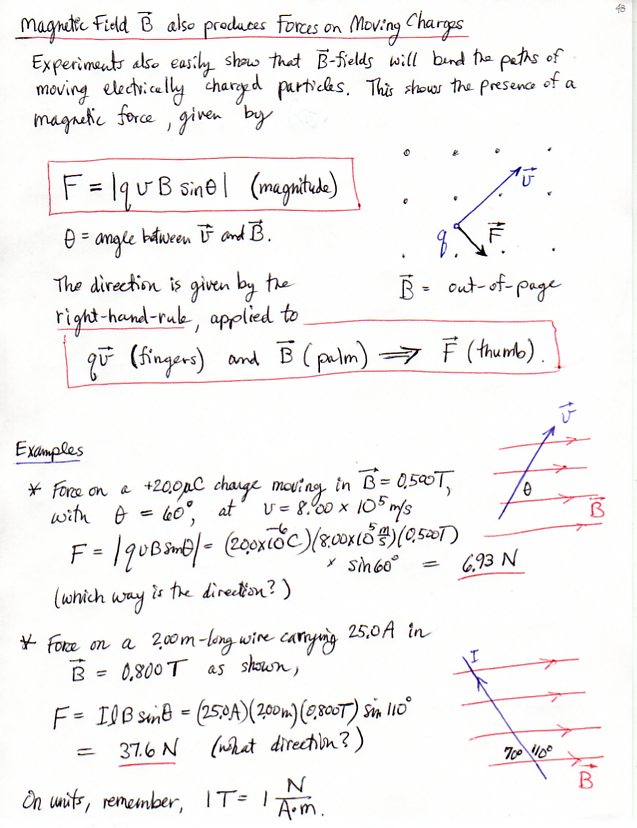 48
Magnetic Field B⃗ also produces Forces on Moving Charges
Experiments also easily show that B⃗-fields will bend the paths of
moving electrically charged particles. This shows the presence of a
magnetic force, given by
F = |q v B sinθ| (magnitude)
θ = angle between v⃗ and B⃗.
v⃗
q
F⃗
B⃗ = out-of-page
The direction is given by the
right-hand-rule, applied to
qv⃗ (fingers) and B⃗ (palm) ⟹ F⃗ (thumb).
Examples
* Force on a +20.0μC charge moving in B⃗ = 0.500T,
with θ = 60°, at v = 8.00 × 10⁵ m/s
F = |qvBsinθ| = (20.0×10⁻⁶C)(8.00×10⁵ m/s)(0.500T)
× sin60° = 6.93 N
(which way is the direction?)
v⃗
θ
B⃗
* Force on a 2.00m-long wire carrying 25.0A in
B⃗ = 0.800T as shown,
F = IlB sinθ = (25.0A)(2.00m)(0.800T) sin 110°
= 37.6 N (what direction?)
I
70° 110°
B⃗
On units, remember, 1T = 1 N/A·m.